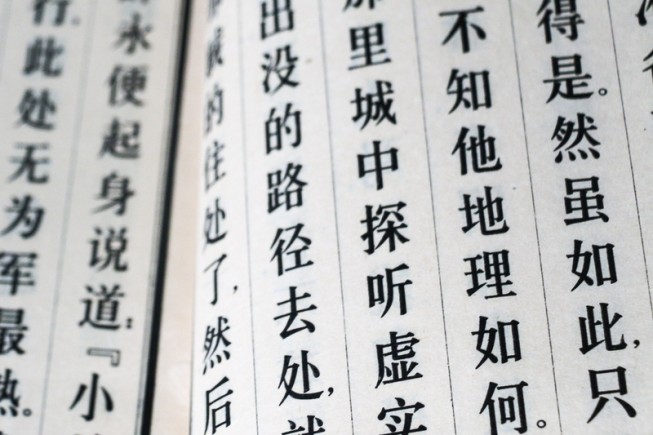 得是。然虽如此,只
不知他地理如何。
那里城中探听虚实
出没的路径去处,就
候的住处了,然后
永便起身说道:『小
行。此处无为军最熟。